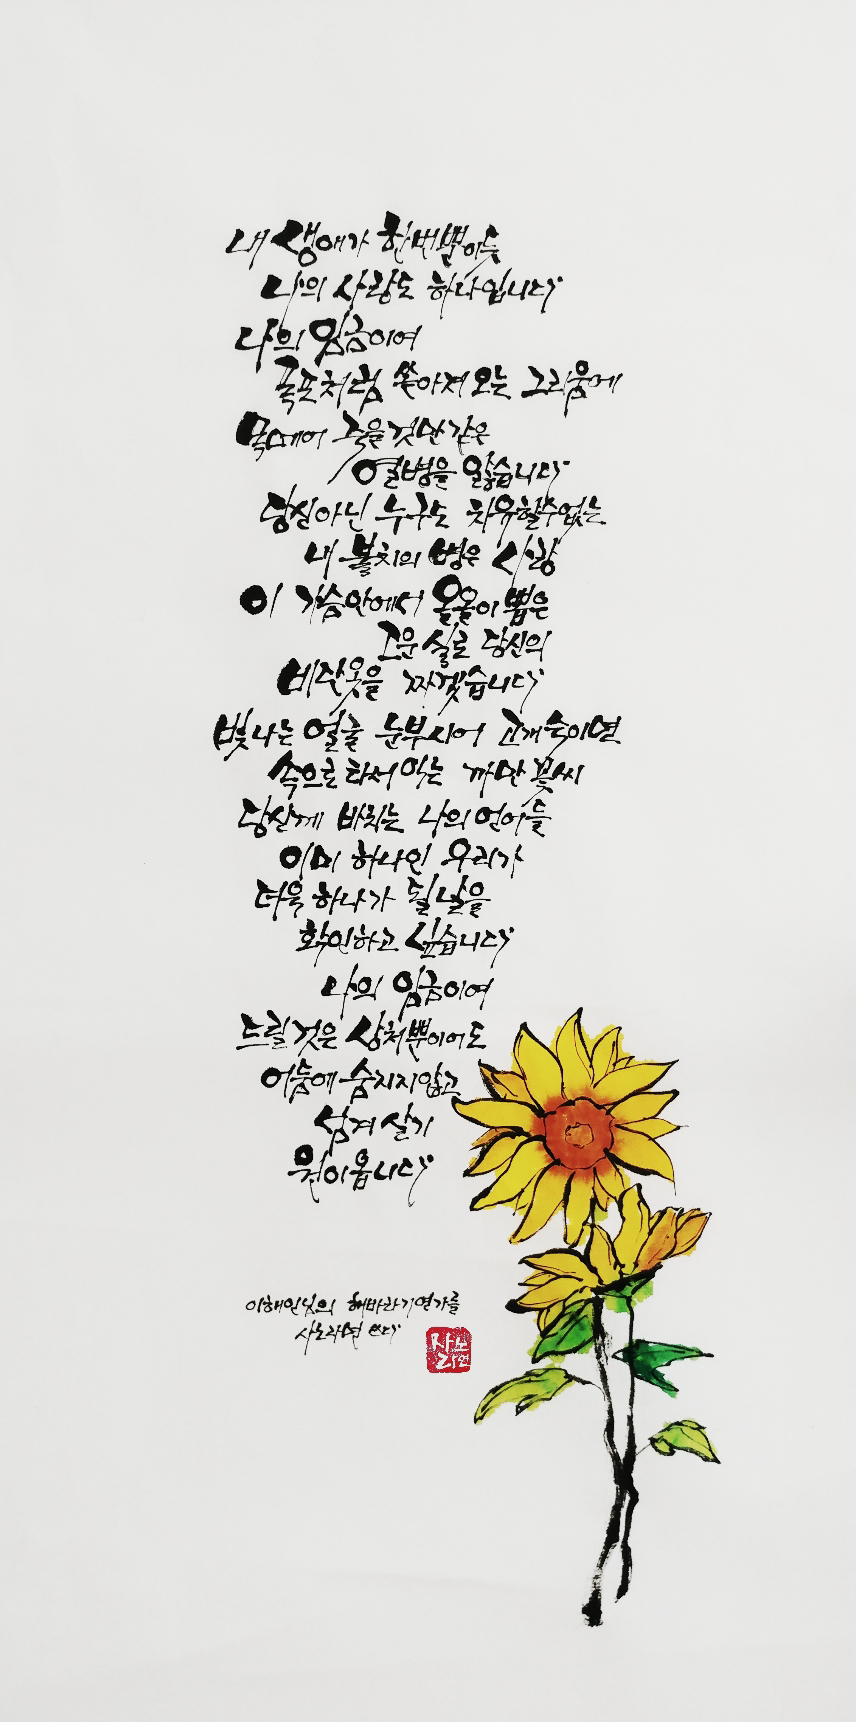 내 생애가 한번뿐이듯
나의 사랑도 하나입니다
나의 임금이여
폭포처럼 쏟아져 오는 그리움에
목메어 죽을것만 같은
열병을 앓습니다
당신아닌 누구도 치유할수없는
내 불치의 병은 사랑
이 가슴안에서 올올이 뽑은
고운 실로 당신의
비단옷을 짜겠습니다
빛나는 얼굴 눈부시어 고개숙이면
속으로 타서 익는 까만 꽃씨
당신께 바치는 나의 언어들
이미 하나인 우리가
더욱 하나가 될 날을
확인하고 싶습니다
나의 임금이여
드릴것은 상처뿐이어도
어둠에 숨지지않고
섬겨 살기
원이옵니다
이해인님의 해바라기연가를
사노라면 쓰다